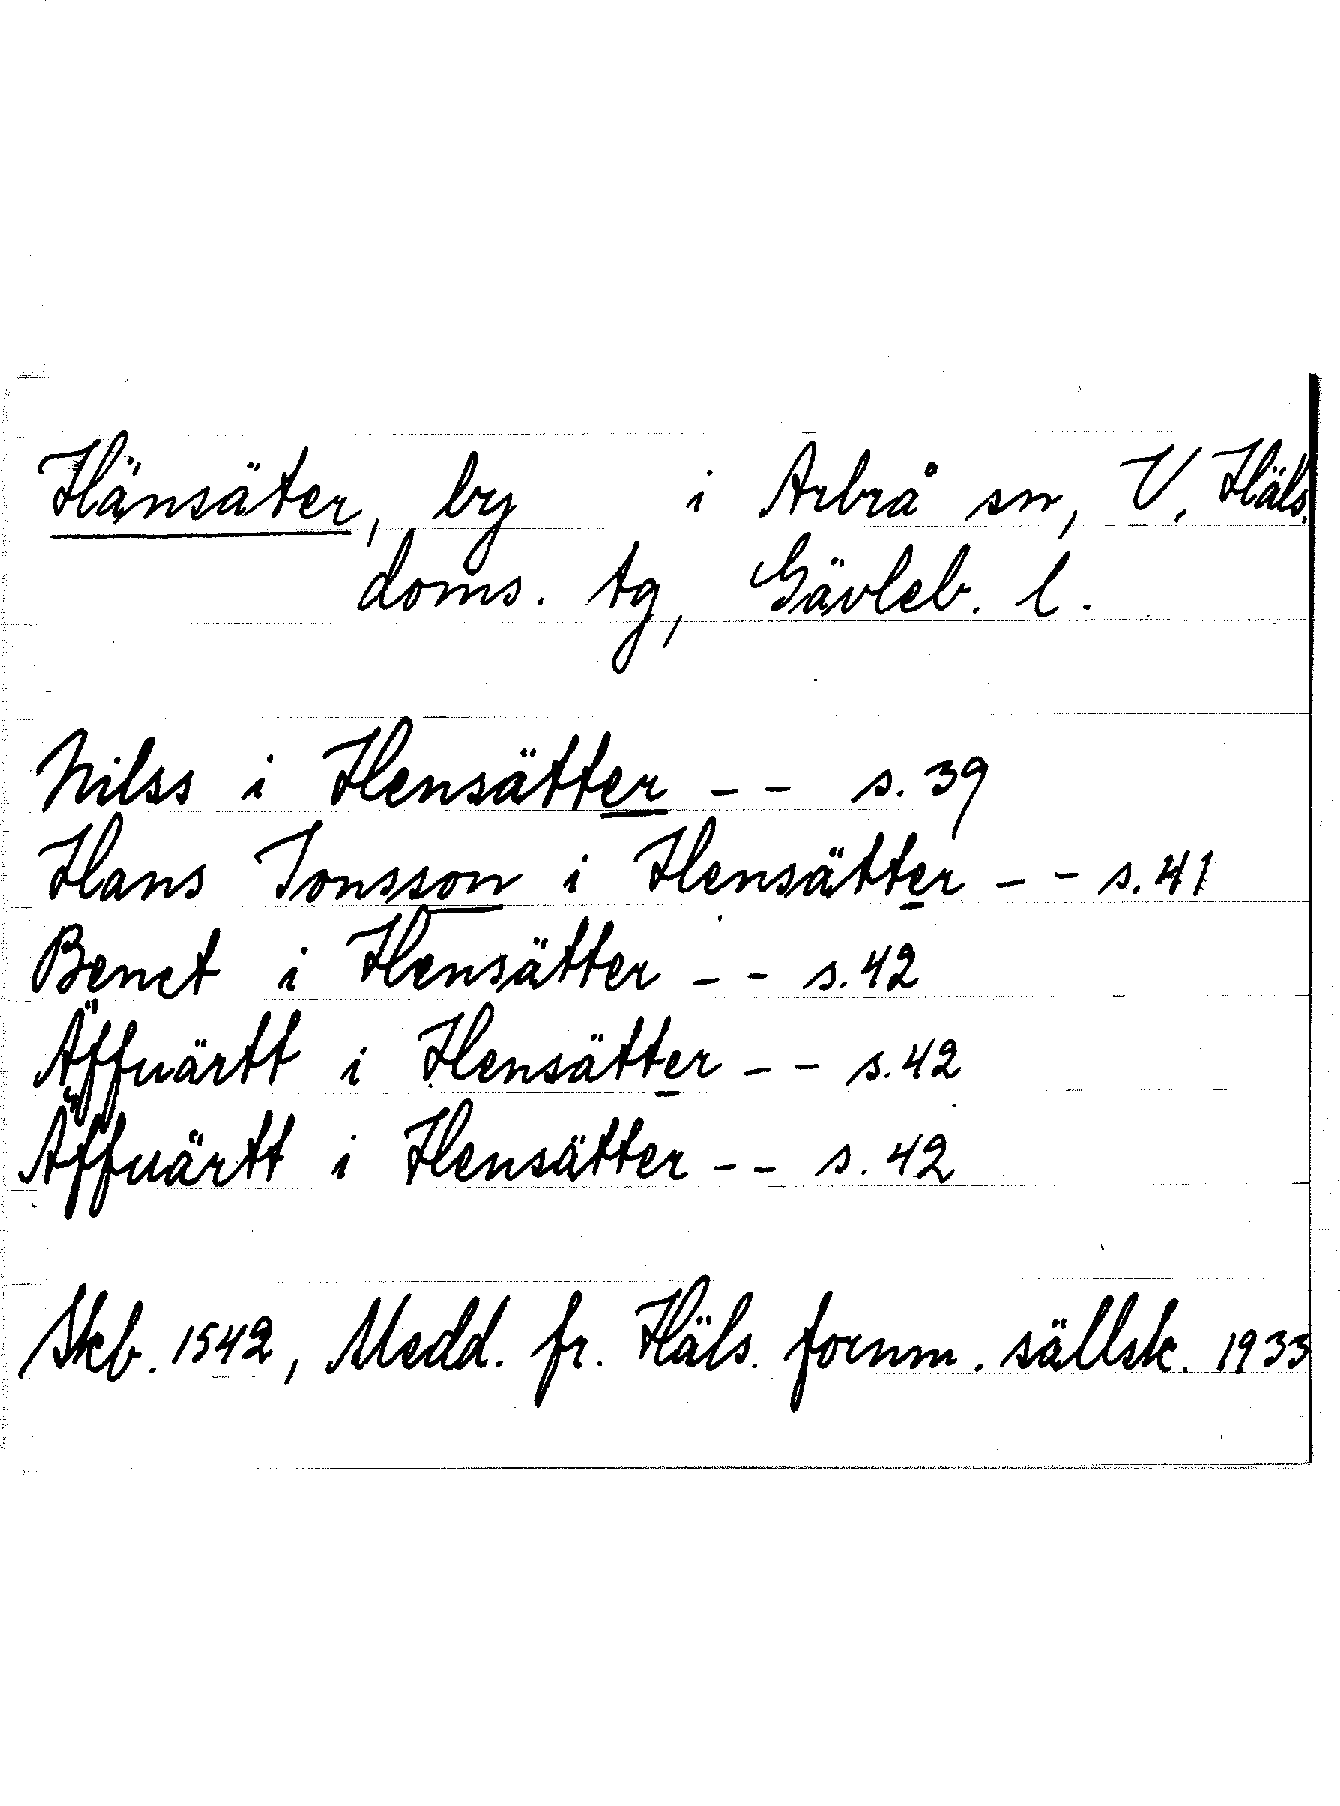 Hänsäter, by i Arbrå sn, V. Häls.
doms. tg, Gävleb. l.
Nilss i Hensätter -- s. 39
Hans Jonsson i Hensätter -- s. 41
Benct i Hensätter -- s. 42
Äffuärtt i Hensätter -- s. 42
Äffuärtt i Hensätter -- s. 42
Skb. 1542, Medd. fr. Häls. fornm. sällsk. 1933